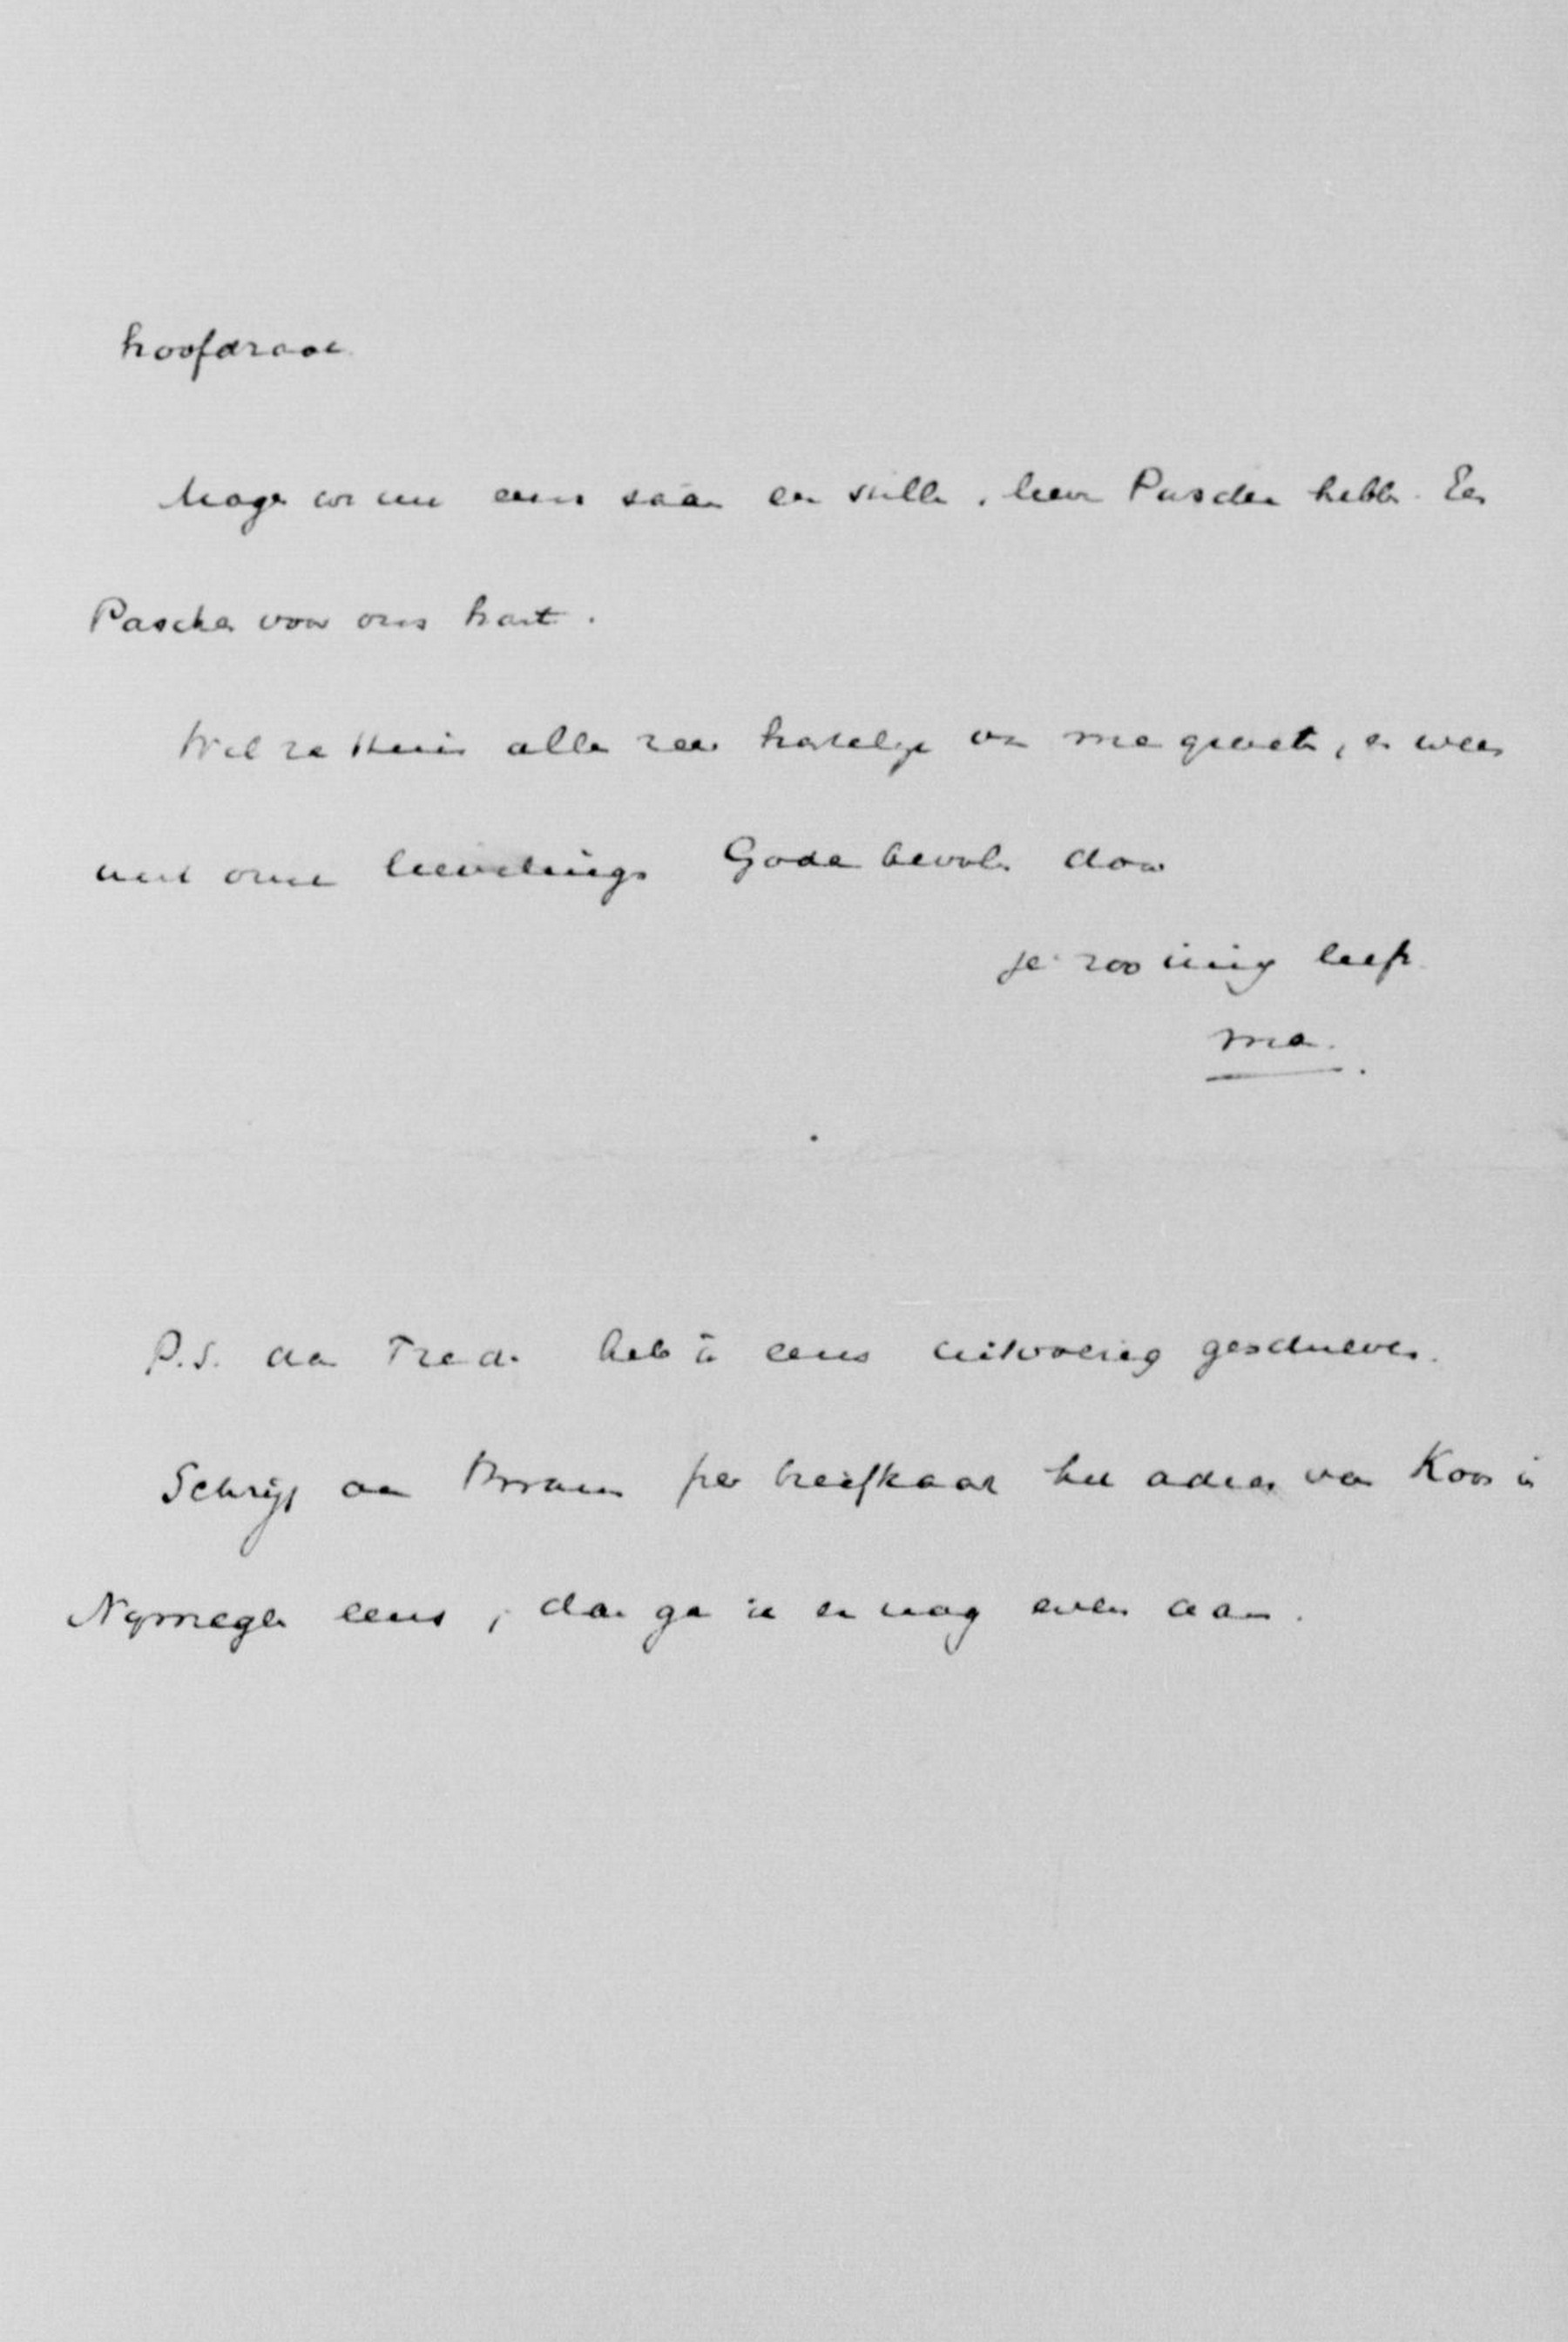 hoofdzaak.
Mogen we nu eens saam een stille, lieve Paschen hebben. Een
Paschen voor ons hart.
Wil ze thuis allen zeer hartelijk van me groeten, en wees
met onze lievelingen Gode bevolen door
je zoo innig liefh.
ma.
P.S. aan Fred. heb ik eens uitvoerig geschreven.
Schrijf aan Bram per briefkaart het adres van Koos in
Nymegen eens, dan ga ik er nog even aan.